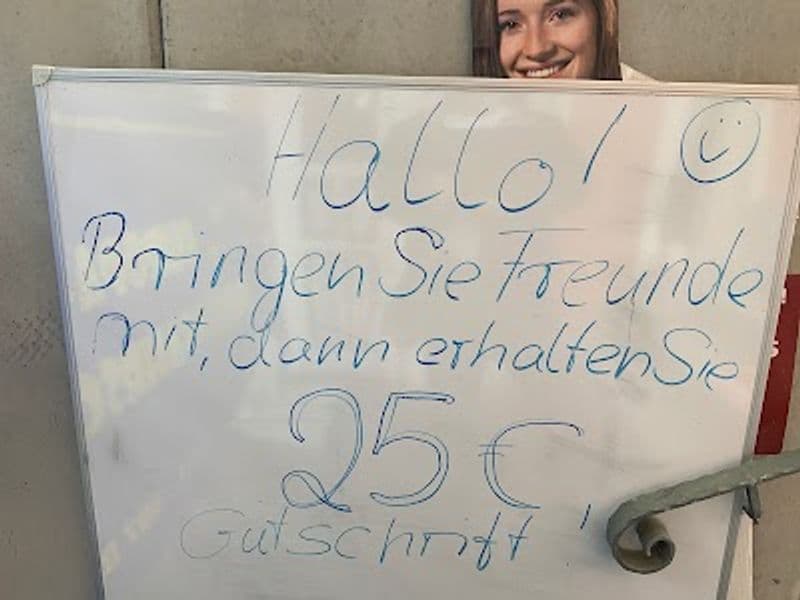 Hallo!
Bringen Sie Freunde
mit, dann erhalten Sie
25 €
Gutschrift!